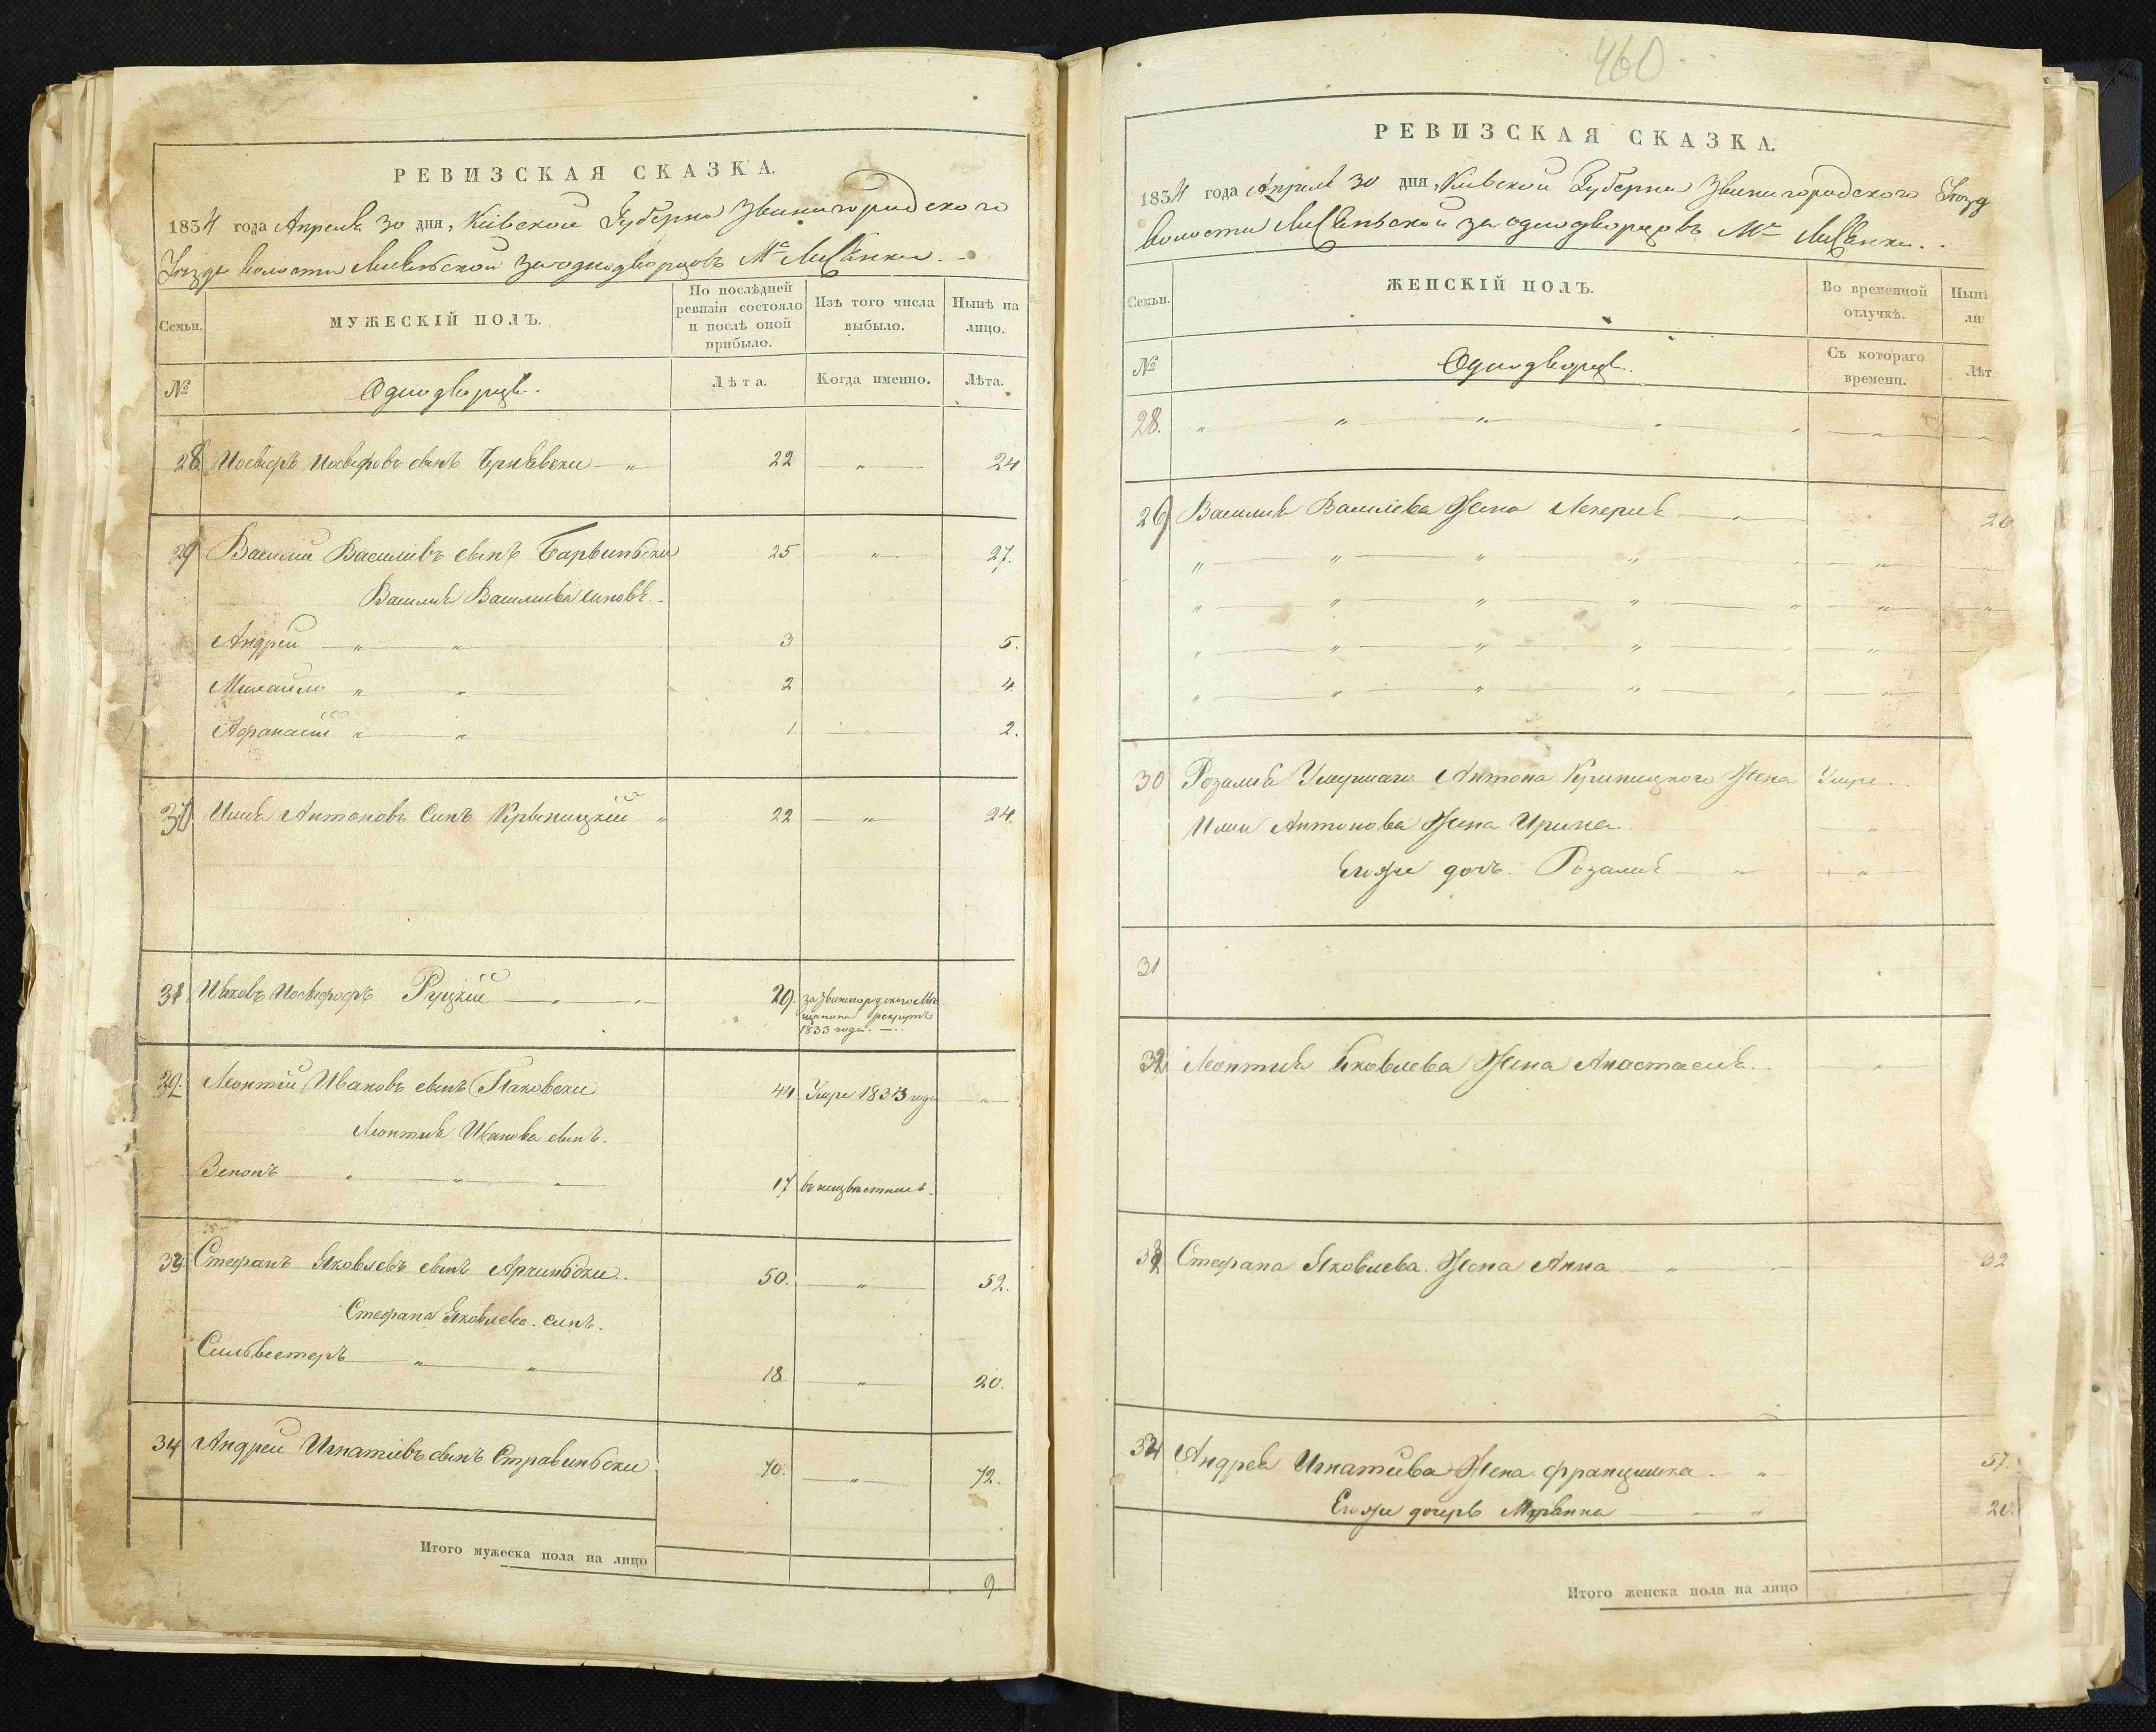 РЕВИЗСКАЯ СКАЗКА.
1834 года Апреля 30 дня, Кіевской Губерніи Звенигородского
волости Лисянской за однодворцовъ Мѣ Лисянки.
Семьи.
МУЖЕСКІЙ ПОЛЪ.
По послѣдней ревизіи состояло и послѣ оной прибыло.
Изъ того числа выбыло.
Нынѣ на лицо.
№
Однодворцѣ.
Лѣта.
Когда именно.
Лѣта.
28 Иосифъ Иосифовъ сынъ 22 24
29 Василий Василіевъ сынъ Барвиньски 25 27.
Василия Василиева синовѣ.
Андрей 3 5.
Михайло 2 4.
Афанасий 1 2.
30 Илия Антоновъ синъ Крыницкій 22 24.
31 Иосифофъ Руцкій 29. за Звенигородского Мѣщанина рекрутъ 1833 года.
32. Леонтий Ивановъ сынъ 44 Умре 1833 года
Леонтия Иванова сынъ.
Зенонъ 17 въ неизвѣстнись.
33 Стефанъ Яковлевъ сынъ 50. 52.
Стефана Яковлева синъ.
Сильвестеръ 18. 20.
34 Андрей Игнатіевъ сынъ Стравиньски 70. 72.
Итого мужеска пола на лицо 9
460
РЕВИЗСКАЯ СКАЗКА.
1834 года Апреля 30 дня, Кіевской Губерніи Звенигородского Уезд
волости Лисяньской за однодворцовъ Мѣ Лисянки.
Семьи.
ЖЕНСКІЙ ПОЛЪ.
Во временной отлучкѣ.
Нынѣ
ли
№
Однодворцѣ.
Съ котораго времени.
Лѣт
28.
29 Василия Василіева Жена 26
30 Розалия Умершаго Антона Криницкого Жена Умре.
Илии Антонова Жена Ирина.
Егоже дочь. Розалия
31
32 Леонтия Яковлева Жена Анастасия.
33 Стефана Яковлева Жена Анна 32
34 Андрея Игнатиева Жена Францишка. 57.
Егоже дочерь Марянна 20.
Итого женска пола на лицо 7